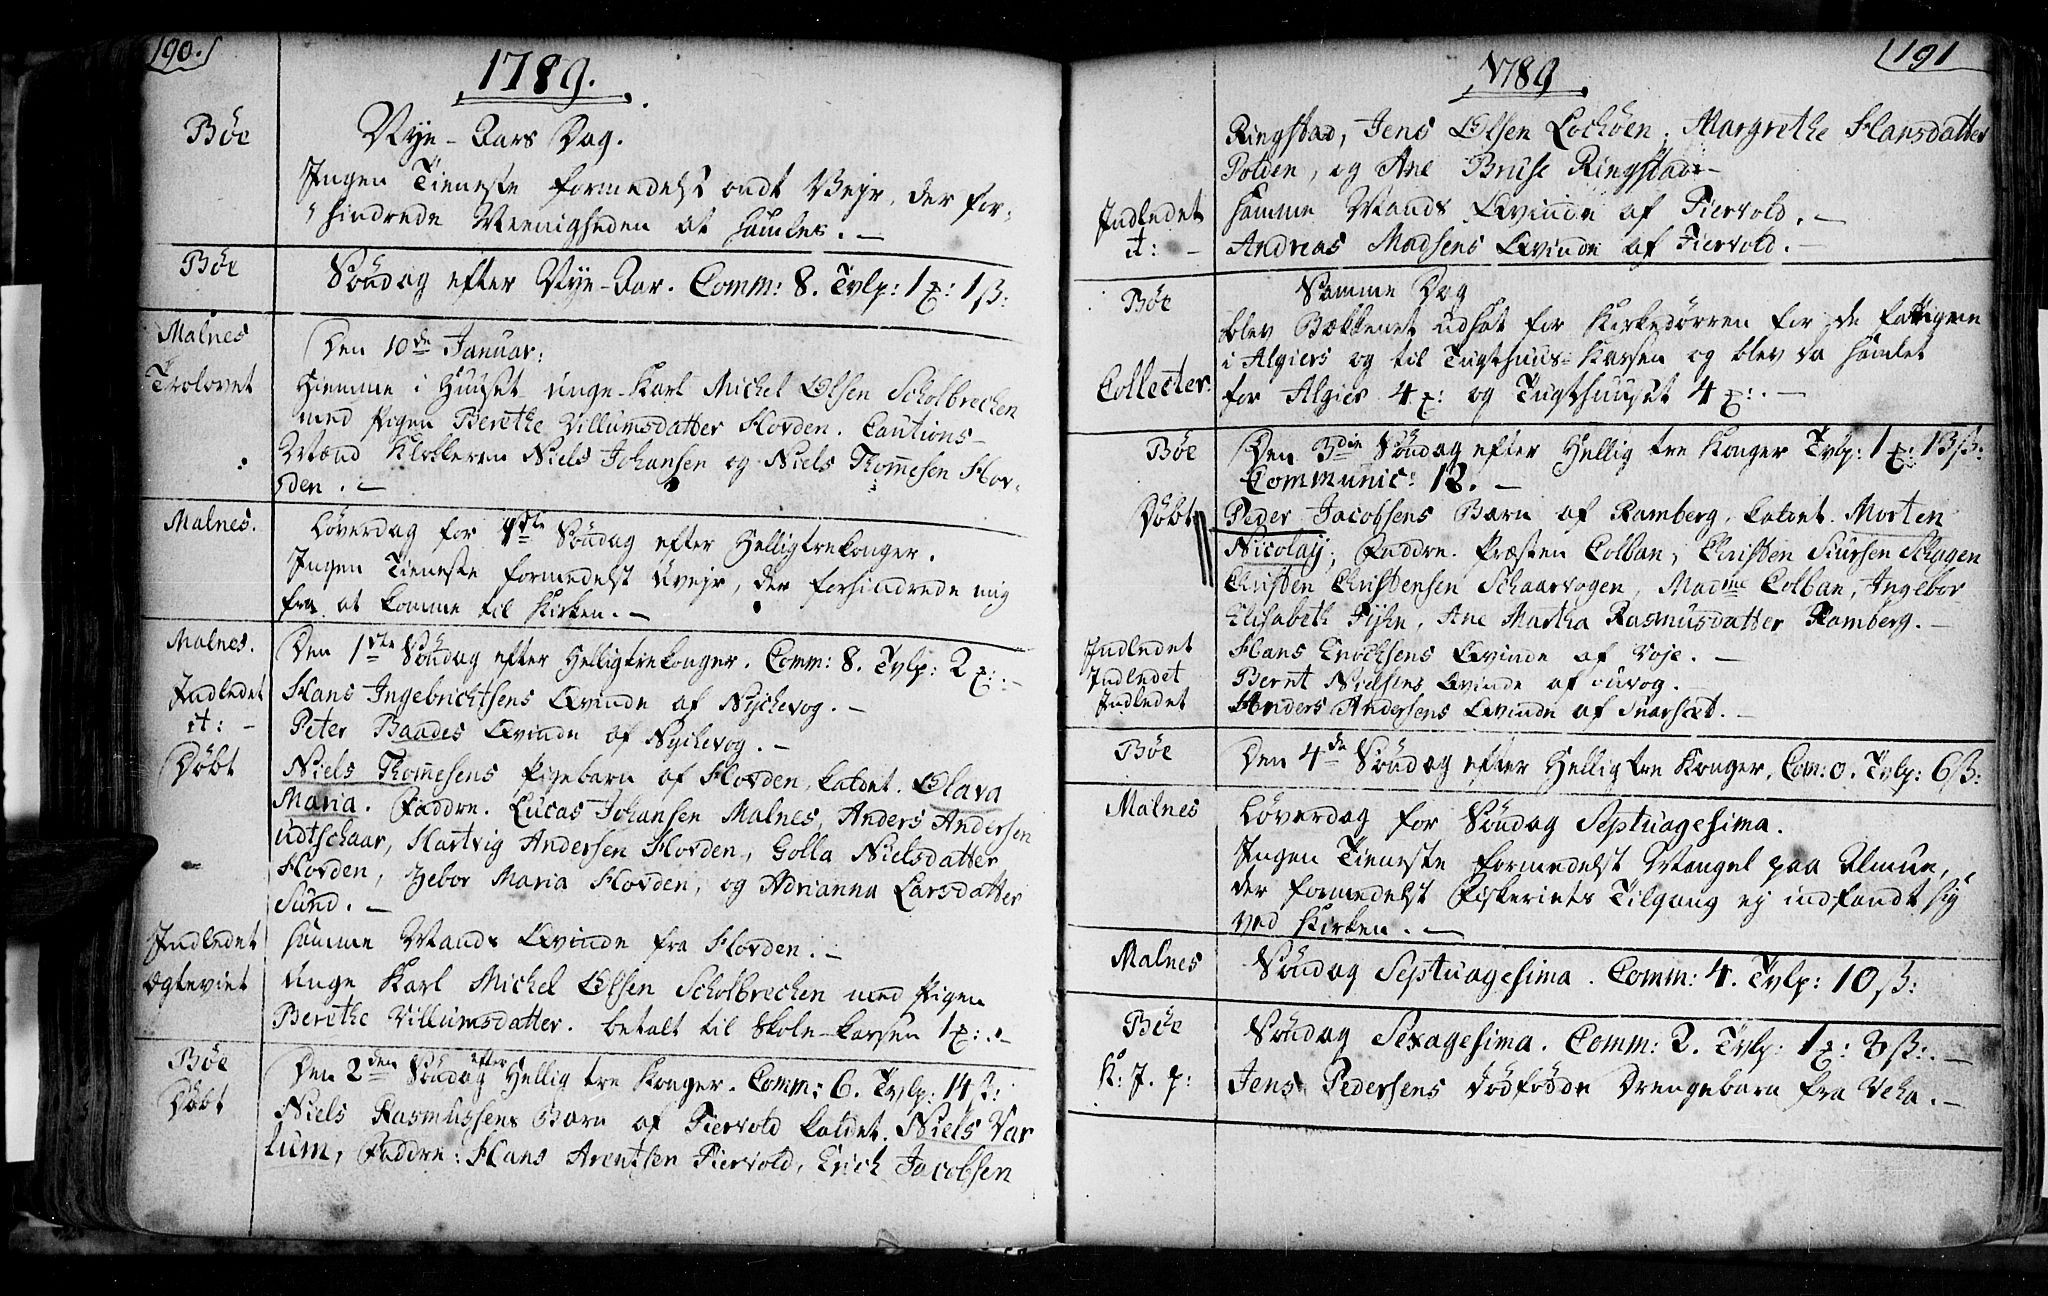 190.
1789.
Bøe
Nye-Aars Dag.
Ingen Tieneste formedelst ondt Vejr, der for-
hindrede Meenigheden at samles. -
Bøe
Søndag efter Nye-Aar. Comm: 8. Tvlp: 1 x: 1 ß:
Malnes
Den 10de Januar:
Trolovet
Hiemme i Huuset unge Karl Michel Olsen Scholbrechen
med Pigen Berethe Villumsdatter Hovden. Cautions-
Mænd Klokkeren Niels Johansen og Niels Thomesen Hov-
den. -
Malnes.
Løverdag for 1ste Søndag efter Helligtrekonger.
Ingen Tieneste formedelst Uvejr, der forhindrede mig
fra at komme til Kirken. -
Malnes.
Den 1ste Søndag efter Helligtrekonger. Comm: 8. Tvlp: 2 x: -
Indledet
Hans Ingebrichtsens Qvinde af Nychevog. -
it: -
Peter Baades Qvinde af Nychevog. -
Døbt
Niels Thomesens Pigebarn af Hovden, kaldet. Olava
Maria. Faddre. Lucas Johansen Malnes, Anders Andersen
udtschaar, Hartvig Andersen Hovden, Golla Nielsdatter
Hovden, Zebor Maria Hovden, og Adrianna Larsdatter
Sund. -
Indledet
samme Mands Qvinde fra Hovden. -
Ægteviet
Unge Karl Michel Olsen Scholbrechen med Pigen
Berethe Villumsdatter. betalt til Skole-Kassen 1 x: -
Bøe
Den 2den Søndag efter Hellig tre Konger. Comm: 6. Tvlp: 14 ß:
Døbt
Niels Rasmussens Barn af Fiervold kaldet. Niels Var
lum, Faddre: Hans Arentsen Fiervold, Erich Jacobsen
191
1789
Ringstad, Jens Olsen Lochøen, Margrethe Hansdatter
Polden, og Ane Bruse Ringstad -
Indledet
samme Mands Qvinde af Fiervold. -
it: -
Andreas Madsens Qvinde af Fiervold. -
Bøe
Samme Dag
blev Bækkenet udsat for Kirkedørren for de fattigene
i Algiers og til Tugthuus-Kassen og blev da samlet
Collecter.
for Algier 4 x: og Tugthuuset 4 x: -
Bøe
Den 3die Søndag efter Hellig tre Konger Tvlp: 1 x: 13 ß:
Communic: 12. -
Døbt
Peder Jacobsens Barn af Ramberg, kaldet. Morten
Nicolaij; Faddre. Præsten Colban, Christen Siursen Schagen
Christen Christensen Schaarvogen, Madme Colban, Ingebor-
Elisabeth Fijhn, Ane Martha Rasmusdatter Ramberg. -
Indledet
Hans Enochsens Qvinde af Voje. -
Indledet
Bernt Nielsens Qvinde af
Indledet
Anders Andersens Qvinde af Snarset. -
Bøe
Den 4de Søndag efter Hellig tre Konger. Com: 0. Tvlp: 6 ß:
Malnes
Løverdag for Søndag Septuagesima.
Ingen Tieneste formedelst Mangel paa Almue,
der formedelst Fiskeriets Tilgang ej indfandt sig
ved Kirken. -
Malnes
Søndag Septuagesima. Comm: 4. Tvlp: 10 ß:
Bøe
Søndag Sexagesima. Comm: 2. Tvlp: 1 x: 3 ß: -
K: J. p:
Jens Pedersens dødfødde Drengebarn fra Veha. -